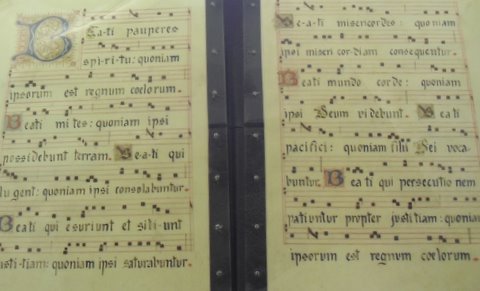 Beati pauperes
spiritu: quoniam
ipsorum est regnum coelorum.
Beati mites: quoniam ipsi
possidebunt terram. Beati qui
lugent: quoniam ipsi consolabuntur.
Beati qui esuriunt et sitiunt
justitiam: quoniam ipsi saturabuntur.
Be-a-ti misericordes: quoniam
ipsi misericordiam consequentur.
Beati mundo corde: quoniam
ipsi Deum videbunt. Beati
pacifici: quoniam filii Dei voca
buntur. Beati qui persecutionem
patiuntur propter justitiam: quoniam
ipsorum est regnum coelorum.